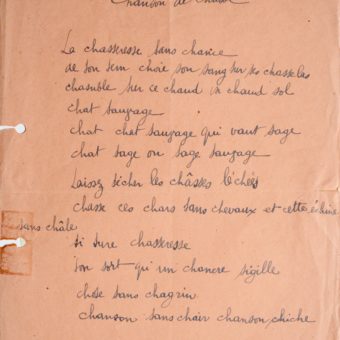 Chanson de
La chasseresse sans chance
de son sein choie son sang sur ses chasselas
chasuble sur ce chaud si chaud sol
chat sauvage
chat chat sauvage qui vaut sage
chat sage ou sage sauvage
Laissez sécher les châsses léchées
chasse ces chars sans chevaux et cette échine
sans châle
si sûre chasseresse
son sort qu'un chancre sigille
chose sans chagrin
chanson sans chair chanson chiche